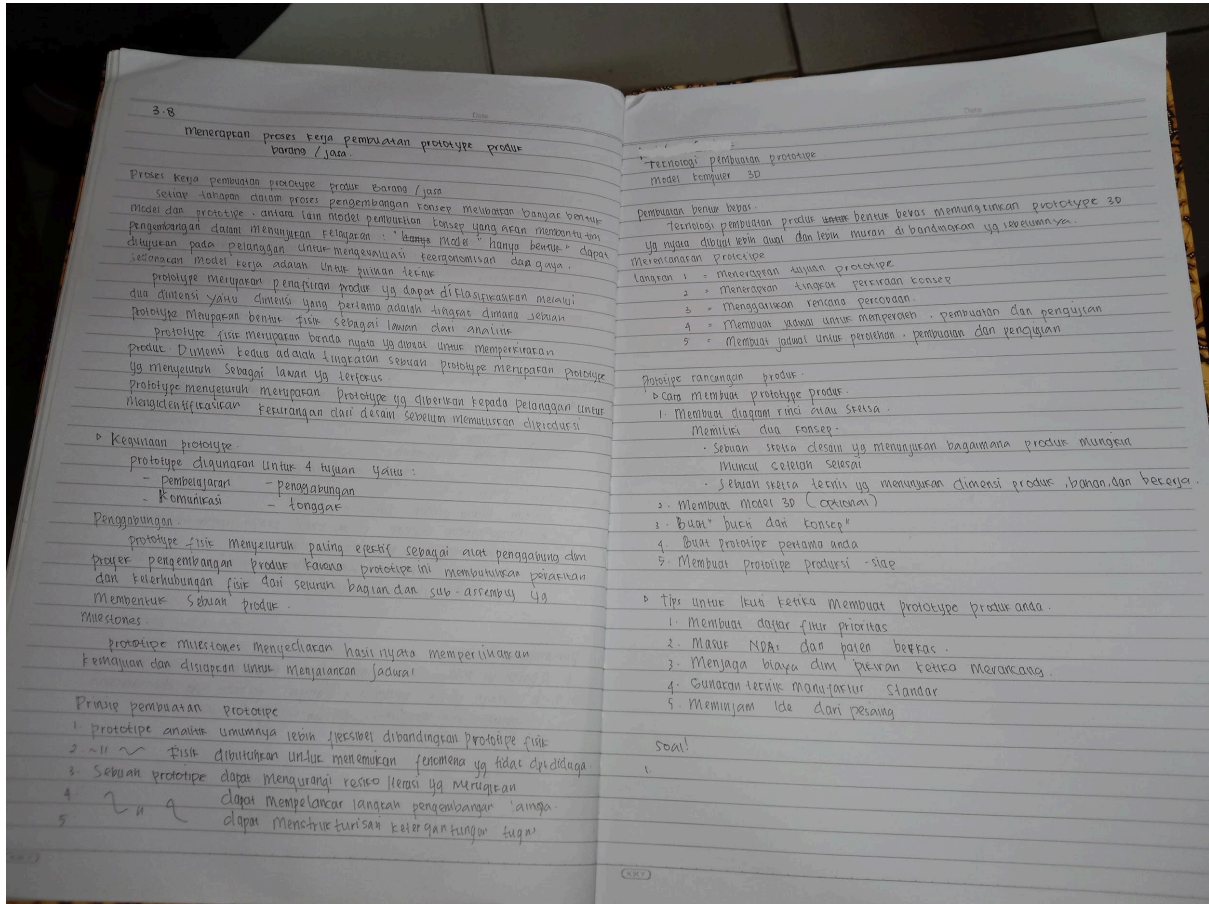 3.8
Menerapkan proses kerja pembuatan prototype produk
barang / jasa.
Proses kerja pembuatan prototype produk Barang / jasa
setiap tahapan dalam proses pengembangan konsep melibatkan banyak bentuk
model dan prototype. antara lain model pembuktian konsep yang akan membantu tim
pengembangan dalam menunjukan kelayakan : " model " hanya bentuk " dapat
ditujukan pada pelanggan untuk mengevaluasi keergonomisan dan gaya.
sedangkan model kerja adalah untuk pilihan teknik
prototype merupakan penafsiran produk yg dapat diklasifikasikan melalui
dua dimensi yaitu dimensi yang pertama adalah tingkat dimana sebuah
prototype merupakan bentuk fisik sebagai lawan dari analitik
prototype fisik merupakan benda nyata yg dibuat untuk memperkirakan
produk. Dimensi kedua adalah tingkatan sebuah prototype merupakan prototype
yg menyeluruh sebagai lawan yg terfokus.
prototype menyeluruh merupakan prototype yg diberikan kepada pelanggan untuk
mengidentifikasikan kekurangan dari desain sebelum memutuskan diproduksi
Kegunaan prototype.
prototype digunakan untuk 4 tujuan yaitu :
- pembelajaran - penggabungan
- Komunikasi - tonggak
Penggabungan.
prototype fisik menyeluruh paling efektif sebagai alat penggabung dan
proyek pengembangan produk karena prototipe ini membutuhkan perakitan
dan keterhubungan fisik dari seluruh bagian dan sub-assembly yg
membentuk sebuah produk.
milestones.
prototipe milestones menyediakan hasil nyata memperlihatkan
kemajuan dan disiapkan untuk menjalankan jadwal
Prinsip pembuatan prototipe
1. prototipe analitik umumnya lebih fleksibel dibandingkan prototipe fisik
2 ~ 11 ~ fisik dibutuhkan untuk menemukan fenomena yg tidak dpt diduga.
3. Sebuah prototipe dapat mengurangi resiko iterasi yg merugikan
4. " dapat mempelancar langkah pengembangan
5. dapat menstrukturisasi ketergantungan
Teknologi pembuatan prototipe
model komputer 3D
pembuatan bentuk bebas.
teknologi pembuatan produk untuk bentuk bebas memungkinkan prototype 3D
yg nyata dibuat lebih awal dan lebih murah di bandingkan yg sebelumnya.
Merencanakan prototipe
langkah 1 = menerapkan tujuan prototipe
2 = Menerapkan tingkat perkiraan konsep
3 = Menggariskan rencana percobaan.
4 = Membuat jadwal untuk memperoleh, pembuatan dan pengujian
5 = Membuat jadwal untuk perolehan, pembuatan dan pengujian
Prototipe rancangan produk.
cara membuat prototype produk.
1. Membuat diagram rinci atau sketsa.
Memiliki dua konsep.
· Sebuah sketsa desain yg menunjukan bagaimana produk mungkin
muncul setelah selesai
· Sebuah sketsa teknis yg menunjukan dimensi produk, bahan, dan bekerja.
2. Membuat model 3D (optional)
3. Buat " bukti dari konsep "
4. Buat prototipe pertama anda
5. Membuat prototipe produksi - siap
Tips untuk ikuti ketika membuat prototype produk anda.
1. Membuat daftar fitur prioritas
2. Masuk NDAs dan paten berkas.
3. Menjaga biaya dlm pikiran ketika merancang.
4. Gunakan teknik manufaktur standar
5. Meminjam ide dari pesaing
soal!
1.